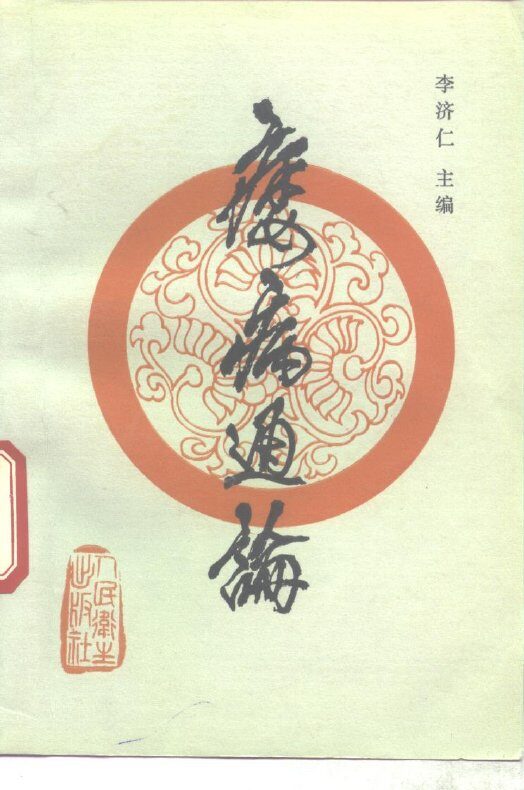 李济仁 主编
痿病通論
人民衛生
出版社